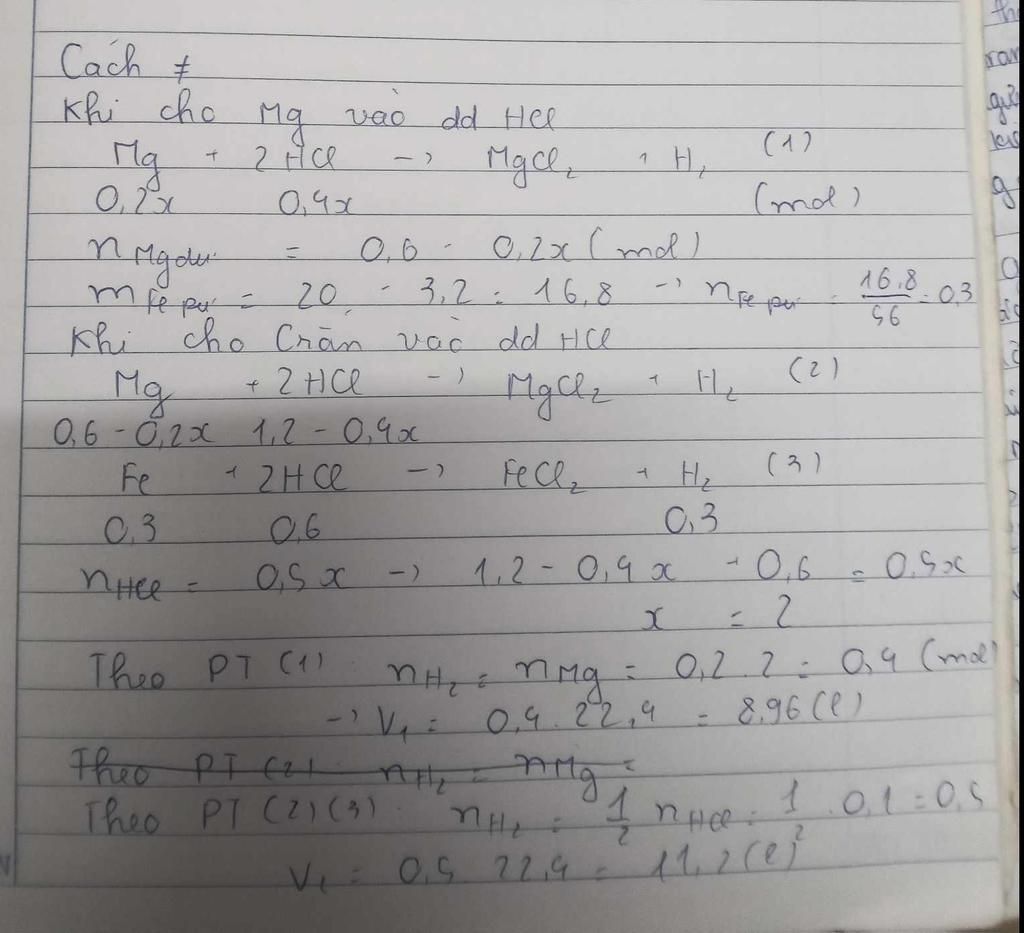 Cách ≠
Khi cho Mg vào dd HCl
Mg + 2HCl → MgCl₂ + H₂ (1)
0,2x 0,4x (mol)
nMg dư = 0,6 - 0,2x (mol)
mFe pư = 20 - 3,2 = 16,8 → nFe pư = 16,8/56 = 0,3
Khi cho Crắn vào dd HCl
Mg + 2HCl → MgCl₂ + H₂ (2)
0,6 - 0,2x 1,2 - 0,4x
Fe + 2HCl → FeCl₂ + H₂ (3)
0,3 0,6 0,3
nHCl = 0,5x → 1,2 - 0,4x + 0,6 = 0,5x
x = 2
Theo PT (1) nH₂ = nMg = 0,2.2 = 0,4 (mol)
→ V₁ = 0,4.22,4 = 8,96 (l)
Theo PT (2) nH₂ = nMg =
Theo PT (2)(3): nH₂ = 1/2 nHCl = 1/2 . 0,1 = 0,5
V₁ = 0,5 22,4 = 11,2 (l)